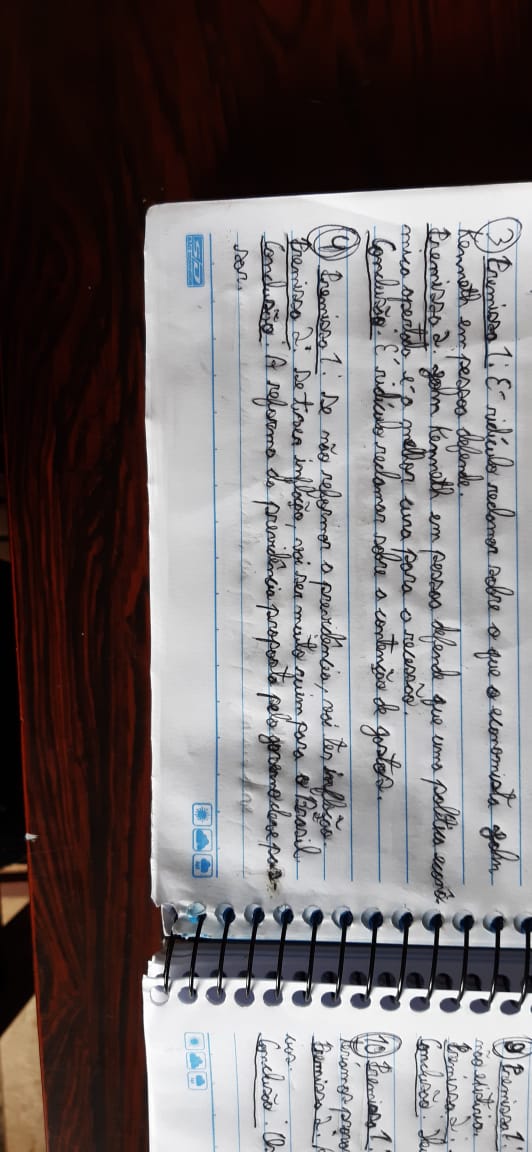 ③ Premissa 1: É ridículo reclamar sobre o que o economista John
Kenneth em pessoa defende.
Premissa 2: John Kenneth em pessoa defende que uma política econô
mica apertada é a melhor cura para a recessão.
Conclusão: É ridículo reclamar sobre a contenção de gastos.
④ Premissa 1: Se não reformar a previdência, vai ter inflação.
Premissa 2: Se tiver inflação, vai ser muito ruim para o Brasil.
Conclusão: A reforma da previdência proposta pelo governo deve pas-
sar.
⑨ Premissa 1:
não existiria
Premissa 2:
Conclusão:
⑩ Premissa 1:
Premissa 2:
Conclusão: